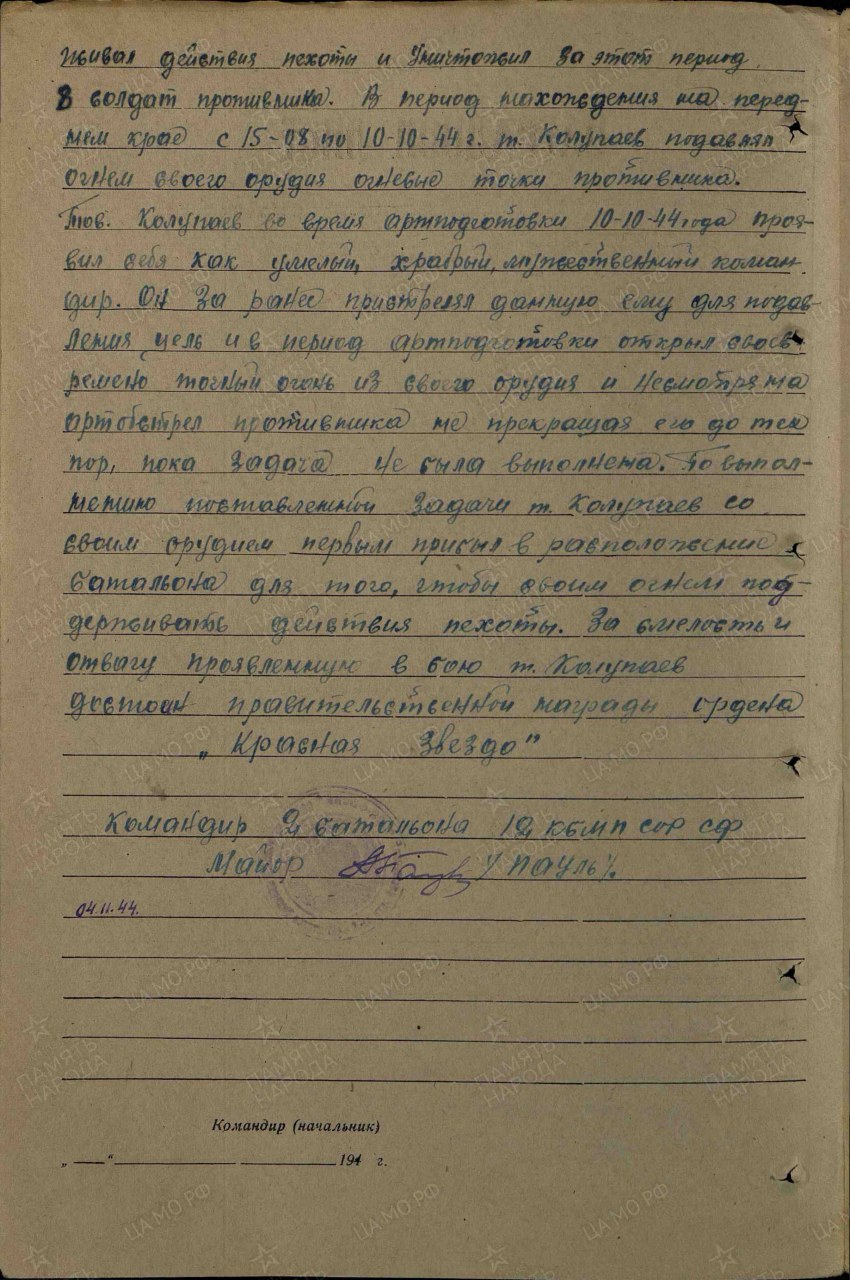 живал действия пехоты и уничтожил за этот период
8 солдат противника. В период нахождения на перед-
нем крае с 15-08 по 10-10-44 г. т. Колупаев подавлял
огнем своего орудия огневые точки противника.
Тов. Колупаев во время артподготовки 10-10-44 года проя-
вил себя как умелый, храбрый, мужественный коман-
дир. Он за ранее пристрелял данную ему для подав-
ления цель и в период артподготовки открыл своев-
ремено точный огонь из своего орудия и несмотря на
артобстрел противника не прекращая его до тех
пор, пока задача не была выполнена. По выпол-
нению поставленной задачи т. Колупаев со
своим орудием первым прибыл в расположение
батальона для того, чтобы своим огнем под-
держивать действия пехоты. За смелость и
отвагу проявленную в бою т. Колупаев
достоин правительственной награды ордена
„Красная Звезда"
Командир 2 батальона 12 КБМП СОР СФ
Майор /Пауль/.
04.11.44.
Командир (начальник)
„ — “ 194 г.
ПАМЯТЬ НАРОДА
ЦАМО.РФ